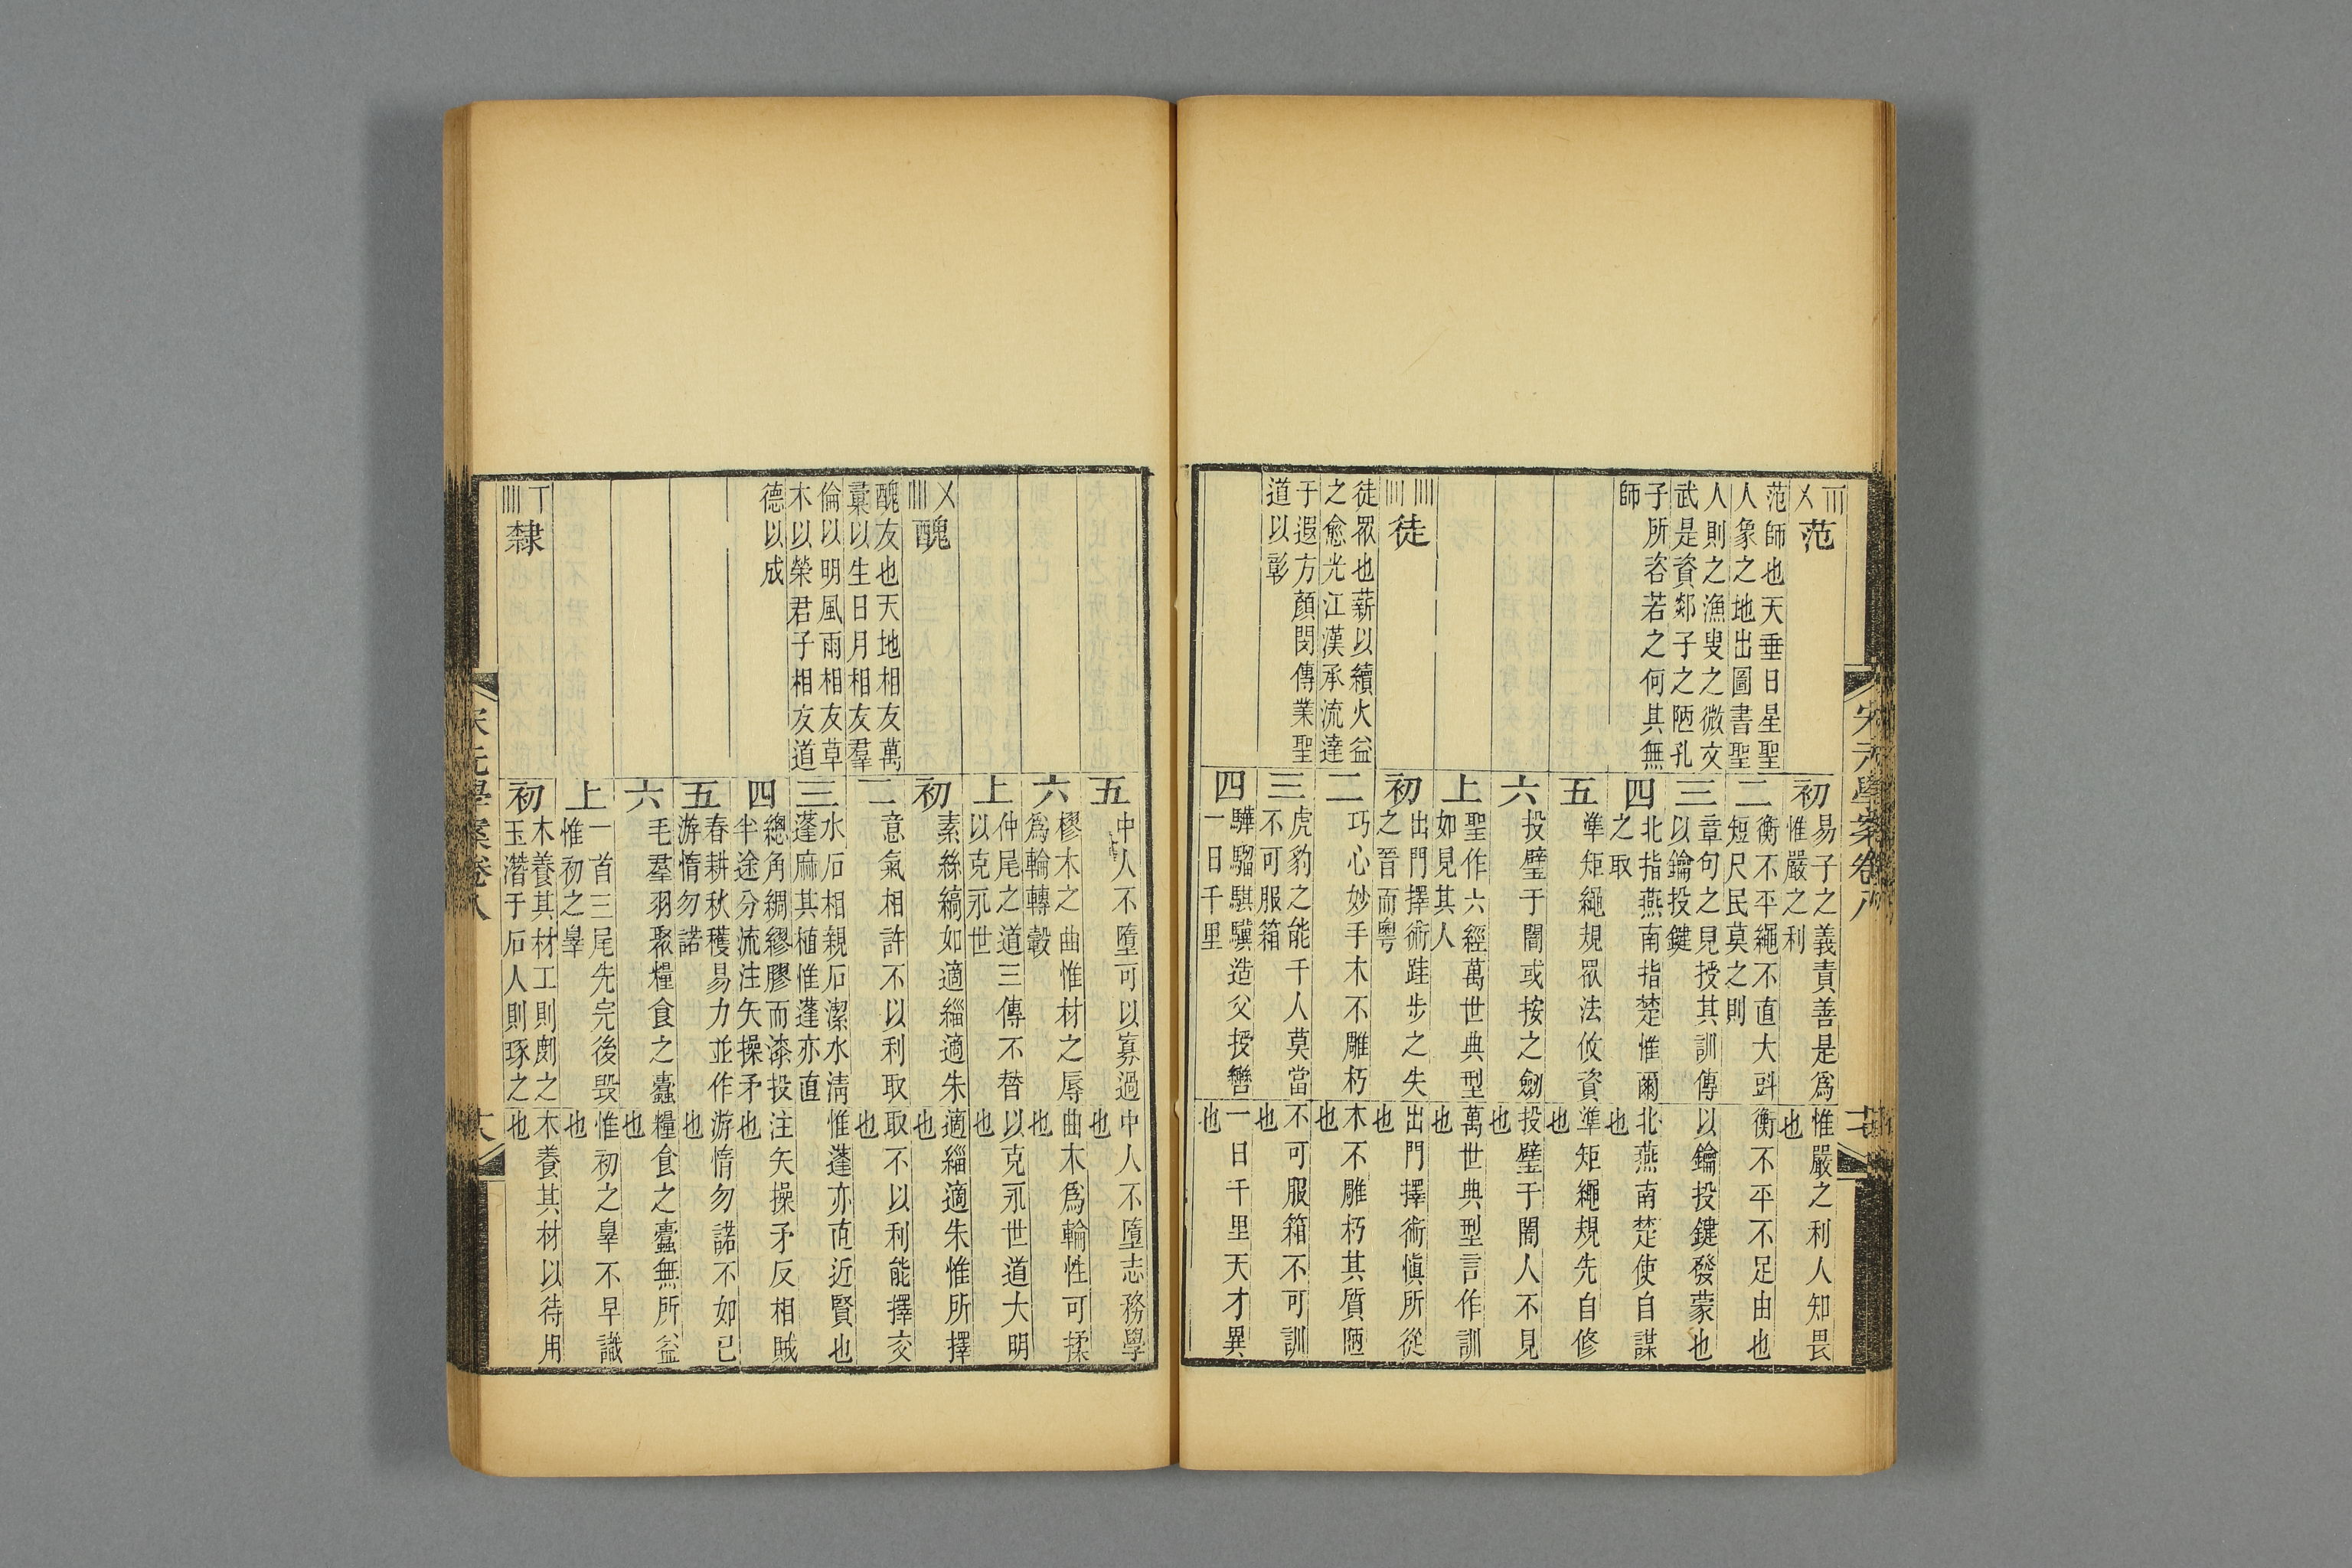 范
范師也天垂日星聖
人象之地出圖書聖
人則之漁叟之微文
武是資郯子之陋孔
子所咨若之何其無
師
初
易子之義責善是爲
惟嚴之利
惟嚴之利人知畏
也
二
衡不平繩不直大㪷
短尺民莫之則
衡不平不足由也
三
章句之見授其訓傳
以鑰投鍵
以鑰投鍵發蒙也
四
北指燕南指楚惟爾
之取
北燕南楚使自謀
也
五
準矩繩規眾法攸資
準矩繩規先自修
也
六
投璧于闇或按之劒
投璧于闇人不見
也
上
聖作六經萬世典型
如見其人
萬世典型言作訓
也
徒
徒眾也薪以續火益
之愈光江漢承流達
于遐方顏閔傳業聖
道以彰
初
出門擇術跬步之失
之晉而粵
出門擇術愼所從
也
二
巧心妙手木不雕朽
木不雕朽其質陋
也
三
虎豹之能千人莫當
不可服箱
不可服箱不可訓
也
四
驊騮騏驥造父授轡
一日千里
一日千里天才異
也
宋元學案卷八
五
中人不墮可以寡過
中人不墮志務學
也
六
樛木之曲惟材之辱
爲輪轉轂
曲木爲輪性可揉
也
上
仲尾之道三傳不替
以克永世
以克永世道大明
也
醜
醜友也天地相友萬
彙以生日月相友羣
倫以明風雨相友草
木以榮君子相友道
德以成
初
素絲縞如適緇適朱
適緇適朱惟所擇
也
二
意氣相許不以利取
取不以利能擇交
也
三
水石相親石潔水淸
蓬麻其植惟蓬亦直
惟蓬亦直近賢也
四
總角綢繆膠而漆投
半途分流注矢操矛
注矢操矛反相賊
也
五
春耕秋穫易力並作
游惰勿諾
游惰勿諾不如已
也
六
毛羣羽聚糧食之蠹
糧食之蠹無所益
也
上
一首三尾先完後毁
惟初之辠
惟初之辠不早識
也
隸
初
木養其材工則劇之
玉潛于石人則琢之
木養其材以待用
也
宋元學案卷八